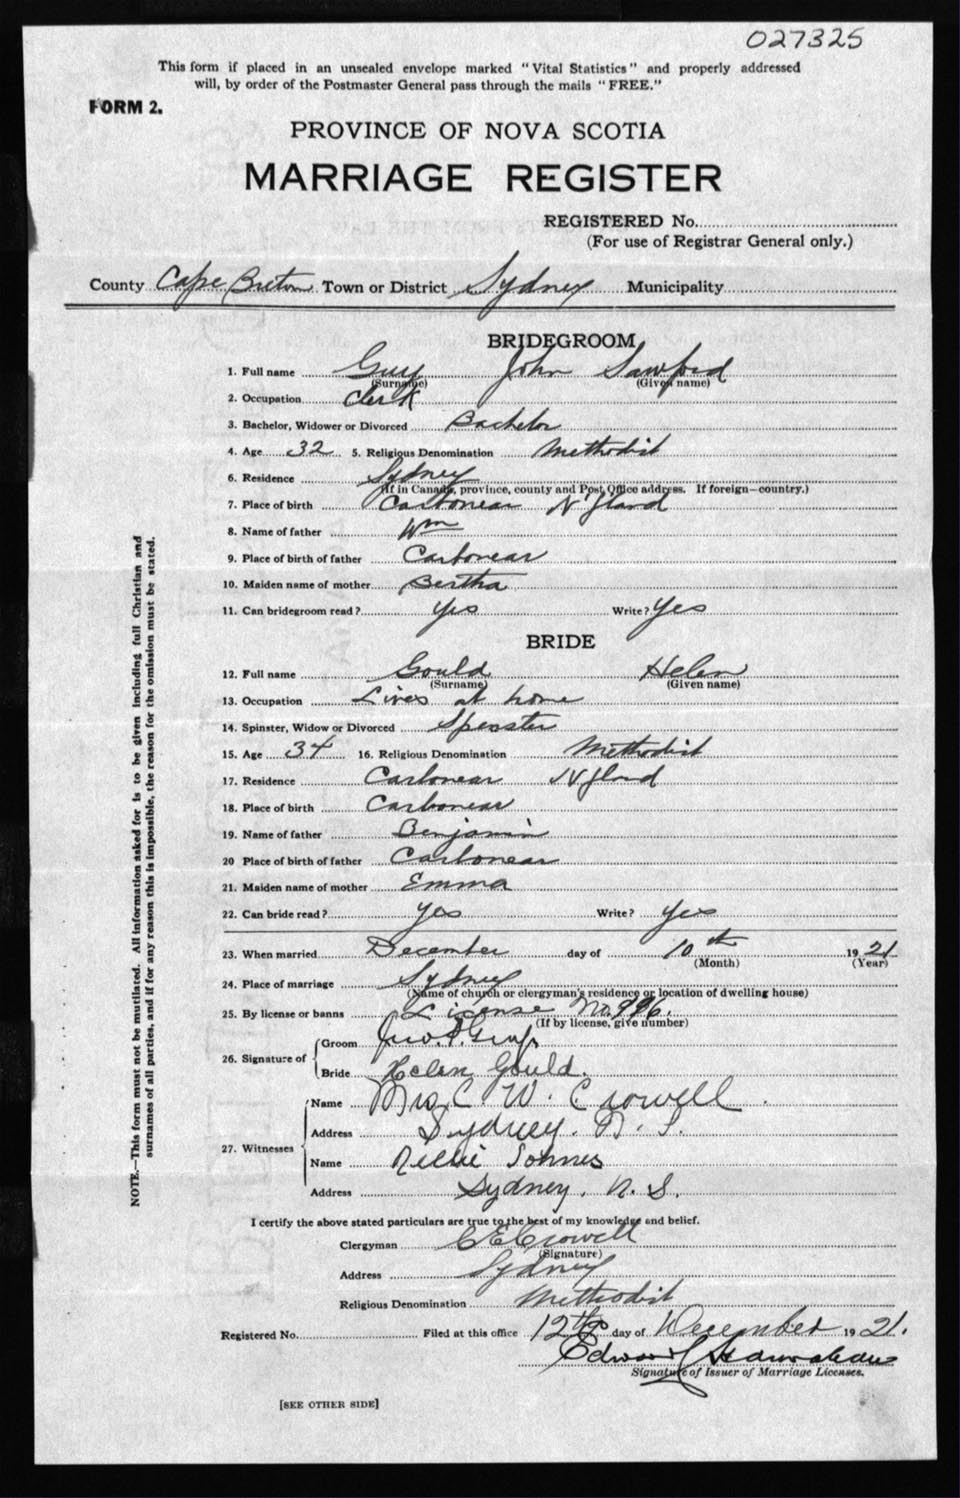 027325
This form if placed in an unsealed envelope marked "Vital Statistics" and properly addressed
will, by order of the Postmaster General pass through the mails "FREE."
FORM 2.
PROVINCE OF NOVA SCOTIA
MARRIAGE REGISTER
REGISTERED No.
(For use of Registrar General only.)
County Cape Breton Town or District Sydney Municipality
BRIDEGROOM
1. Full name Guy John Sawford
(Surname) (Given name)
2. Occupation Clerk
3. Bachelor, Widower or Divorced Bachelor
4. Age 32 5. Religious Denomination Methodist
6. Residence Sydney
(If in Canada, province, county and Post Office address. If foreign—country.)
7. Place of birth Carbonear N'fland
8. Name of father Wm
9. Place of birth of father Carbonear
10. Maiden name of mother Bertha
11. Can bridegroom read? Yes Write? Yes
BRIDE
12. Full name Gould Helen
(Surname) (Given name)
13. Occupation Lives at home
14. Spinster, Widow or Divorced Spinster
15. Age 34 16. Religious Denomination Methodist
17. Residence Carbonear Nfland
18. Place of birth Carbonear
19. Name of father Benjamin
20 Place of birth of father Carbonear
21. Maiden name of mother Emma
22. Can bride read? Yes Write? Yes
23. When married December day of 10th 1921
(Month) (Year)
24. Place of marriage Sydney
(Name of church or clergyman's residence or location of dwelling house)
25. By license or banns License No. 996.
(If by license, give number)
26. Signature of
Groom Jno. S. Guy
Bride Helen Gould.
27. Witnesses
Name Mrs. C. W. Crowell.
Address Sydney. N. S.
Name Nellie
Address Sydney. N. S.
I certify the above stated particulars are true to the best of my knowledge and belief.
Clergyman C E Crowell
(Signature)
Address Sydney
Religious Denomination Methodist
Registered No. Filed at this office 12th day of December 1921.
Edward
Signature of Issuer of Marriage Licenses.
[SEE OTHER SIDE]
NOTE.—This form must not be mutilated. All information asked for is to be given including full Christian and
surnames of all parties, and if for any reason this is impossible, the reason for the omission must be stated.